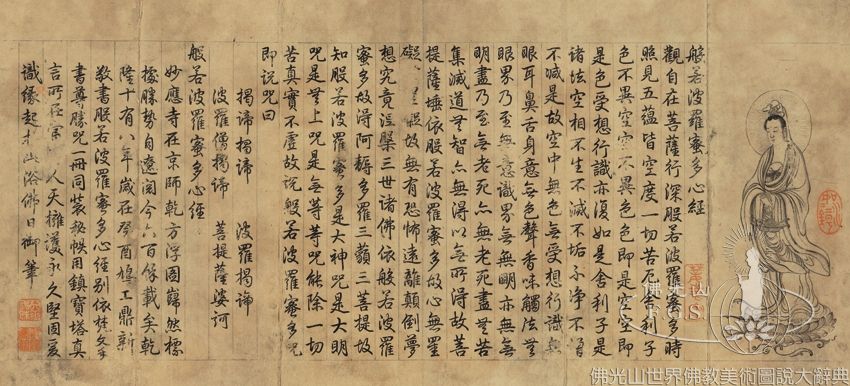 般若波羅蜜多心經
觀自在菩薩行深般若波羅蜜多時
照見五蘊皆空度一切苦厄舍利子
色不異空空不異色色即是空空即
是色受想行識亦復如是舍利子是
諸法空相不生不滅不垢不淨不增
不減是故空中無色無受想行識無
眼耳鼻舌身意無色聲香味觸法無
眼界乃至無意識界無無明亦無無
明盡乃至無老死亦無老死盡無苦
集滅道無智亦無得以無所得故菩
提薩埵依般若波羅蜜多故心無罣
礙故無有恐怖遠離顛倒夢
想究竟涅槃三世諸佛依般若波羅
蜜多故得阿耨多羅三藐三菩提故
知般若波羅蜜多是大神咒是大明
咒是無上咒是無等等咒能除一切
苦真實不虛故說般若波羅蜜多咒
即說咒曰
揭諦揭諦 波羅揭諦
波羅僧揭諦 菩提薩婆訶
般若波羅蜜多心經
妙應寺在京師乾方浮圖巋然標
據勝勢自遼閱今六百餘載矣乾
隆十有八年歲在癸酉鳩工鼎新
敬書般若波羅蜜多心經別依梵文手
書尊勝咒冊同裝秘帙用鎮寶塔真
言所在人天擁護永久堅固爰
識緣起浴佛日御筆
佛光山
FGS
佛光山世界佛教美術圖說大辭典